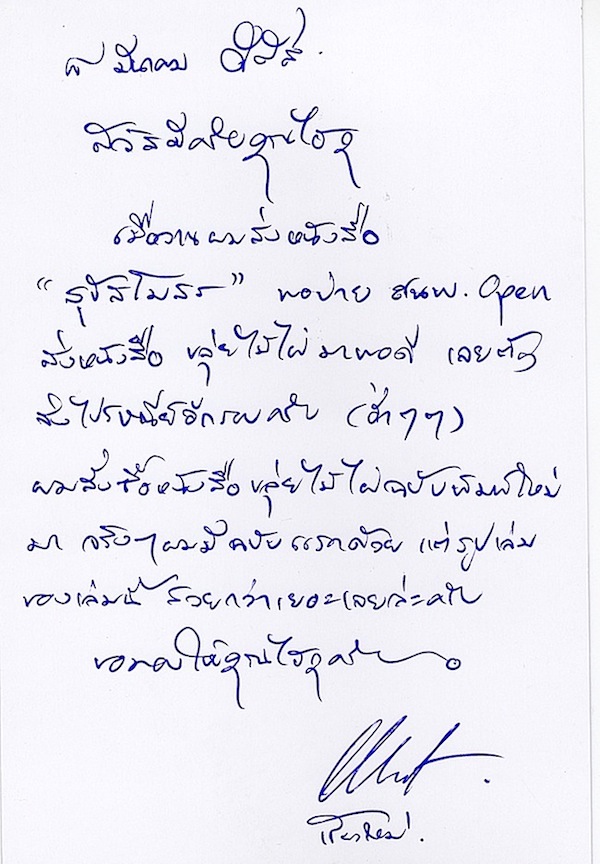 ๘ มีนาคม ๕๕
สวัสดีครับคุณโอ๋
เมื่อวานผมส่งหนังสือ
“สุขสโมสร” พอบ่าย สนพ. Open
ส่งหนังสือ ขลุ่ยไม้ไผ่ มาพอดี เลยต้อง
ส่งไปรษณีย์อีกรอบครับ (ฮ่าๆๆ)
ผมสั่งซื้อหนังสือ ขลุ่ยไม้ไผ่ฉบับพิมพ์ใหม่
มา จริงๆผมมีฉบับแรกด้วย แต่รูปเล่ม
ของเล่มนี้ สวยกว่าเยอะเลยล่ะครับ
ขอมอบให้คุณโอ๋ครับ
เชียงใหม่.